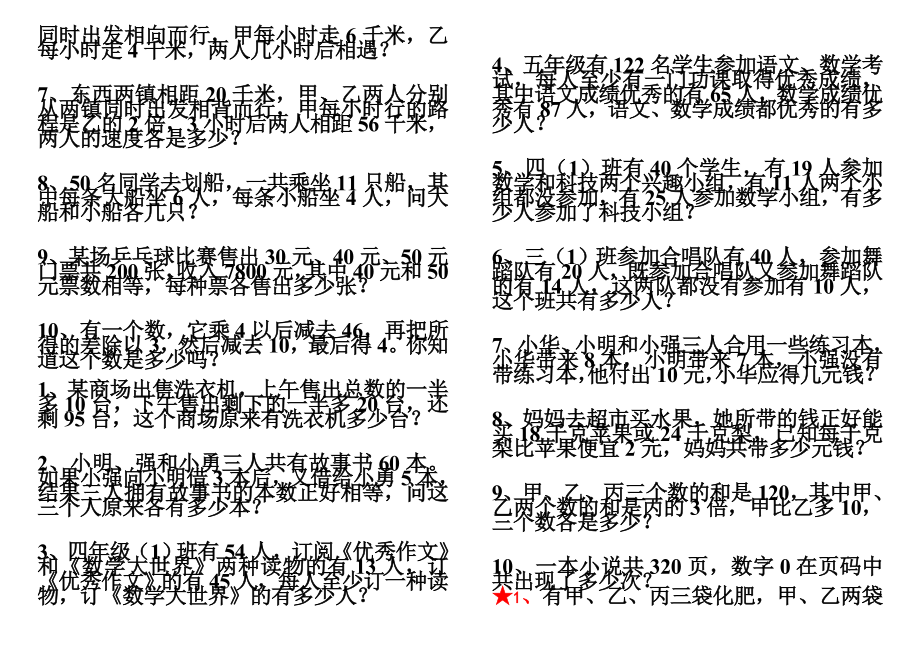 同时出发相向而行，甲每小时走 6 千米，乙
每小时走 4 千米，两人几小时后相遇？
7、东西两镇相距 20 千米，甲、乙两人分别
从两镇同时出发相背而行，甲每小时行的路
程是乙的 2 倍，3 小时后两人相距 56 千米，
两人的速度各是多少？
8、50 名同学去划船，一共乘坐 11 只船，其
中每条大船坐 6 人，每条小船坐 4 人，问大
船和小船各几只？
9、某场乒乓球比赛售出 30 元、40 元、50 元
门票共 200 张，收入 7800 元，其中 40 元和 50
元票数相等，每种票各售出多少张？
10、有一个数，它乘 4 以后减去 46，再把所
得的差除以 3，然后减去 10，最后得 4。你知
道这个数是多少吗？
1、某商场出售洗衣机，上午售出总数的一半
多 10 台，下午售出剩下的一半多 20 台，还
剩 95 台，这个商场原来有洗衣机多少台？
2、小明、强和小勇三人共有故事书 60 本。
如果小强向小明借 3 本后，又借给小勇 5 本，
结果三人拥有故事书的本数正好相等，问这
三个人原来各有多少本？
3、四年级（1）班有 54 人，订阅《优秀作文》
和《数学大世界》两种读物的有 13 人，订
《优秀作文》的有 45 人，每人至少订一种读
物，订《数学大世界》的有多少人？
4、五年级有 122 名学生参加语文、数学考
试，每人至少有一门功课取得优秀成绩，
其中语文成绩优秀的有 65 人，数学成绩优
秀有 87 人，语文、数学成绩都优秀的有多
少人？
5、四（1）班有 40 个学生，有 19 人参加
数学和科技两个兴趣小组，有 11 人两个小
组都没参加，有 25 人参加数学小组，有多
少人参加了科技小组？
6、三（1）班参加合唱队有 40 人，参加舞
蹈队有 20 人，既参加合唱队又参加舞蹈队
的有 14 人，这两队都没有参加有 10 人，
这个班共有多少人？
7、小华、小明和小强三人合用一些练习本，
小华带来 8 本，小明带来 7 本，小强没有
带练习本，他付出 10 元，小华应得几元钱？
8、妈妈去超市买水果，她所带的钱正好能
买 18 千克苹果或 24 千克梨。已知每千克
梨比苹果便宜 2 元，妈妈共带多少元钱？
9、甲、乙、丙三个数的和是 120，其中甲、
乙两个数的和是丙的 3 倍，甲比乙多 10，
三个数各是多少？
10、一本小说共 320 页，数字 0 在页码中
共出现了多少次？
★1、有甲、乙、丙三袋化肥，甲、乙两袋